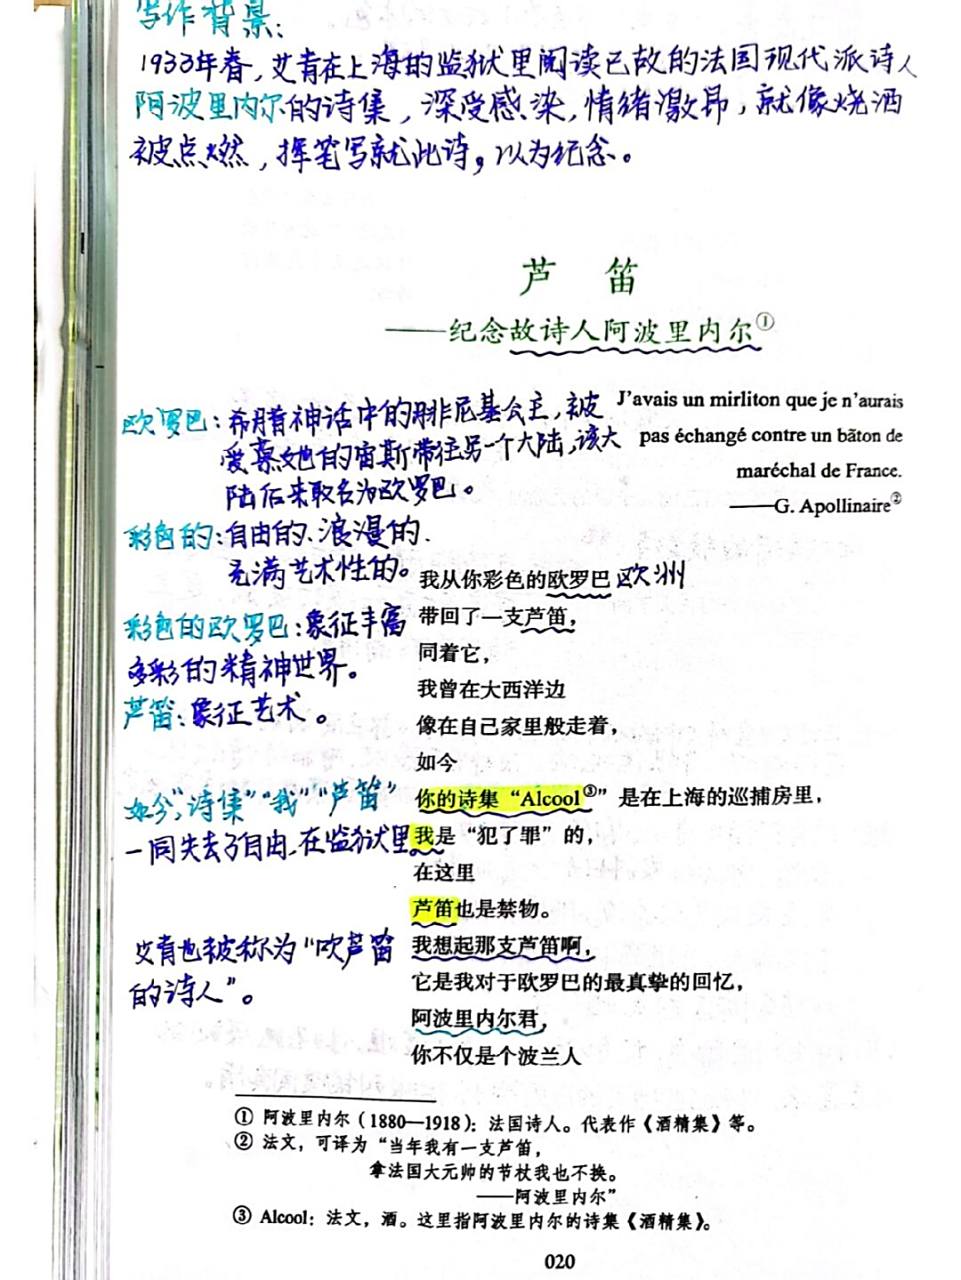 写作背景:
1933年春,艾青在上海的监狱里阅读已故的法国现代派诗人
阿波里内尔的诗集,深受感染,情绪激昂,就像烧酒
被点燃,挥笔写就此诗,以为纪念。
芦 笛
——纪念故诗人阿波里内尔①
J'avais un mirliton que je n'aurais
pas échangé contre un bāton de
maréchal de France.
——G. Apollinaire②
欧罗巴:希腊神话中的腓尼基公主,被
爱慕她的宙斯带往另一个大陆,该大
陆后来取名为欧罗巴。
彩色的:自由的、浪漫的、
充满艺术性的。
我从你彩色的欧罗巴 欧洲
彩色的欧罗巴:象征丰富
多彩的精神世界。
芦笛:象征艺术。
带回了一支芦笛,
同着它,
我曾在大西洋边
像在自己家里般走着,
如今
"如今","诗集""我""芦笛"
一同失去了自由,在监狱里
你的诗集“Alcool③”是在上海的巡捕房里,
我是“犯了罪”的,
在这里
芦笛也是禁物。
艾青也被称为“吹芦笛
的诗人”。
我想起那支芦笛啊,
它是我对于欧罗巴的最真挚的回忆,
阿波里内尔君,
你不仅是个波兰人
① 阿波里内尔(1880—1918):法国诗人。代表作《酒精集》等。
② 法文,可译为“当年我有一支芦笛,
拿法国大元帅的节杖我也不换。
——阿波里内尔”
③ Alcool:法文,酒。这里指阿波里内尔的诗集《酒精集》。
020